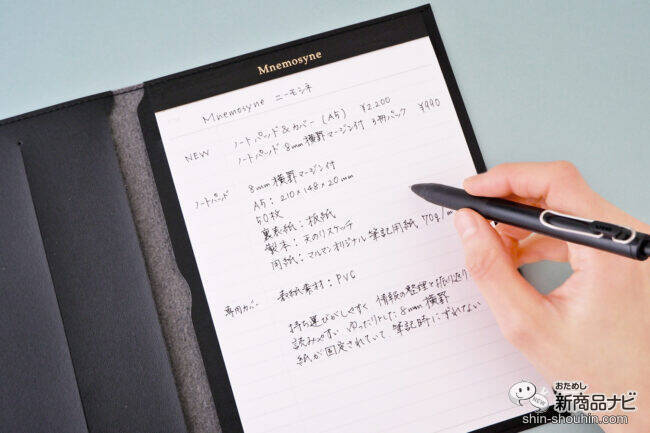 Mnemosyne
Mnemosyne ニーモシネ
NEW ノートパッド&カバー (A5) ¥2,200
ノートパッド 8mm横罫マージン付 3冊パック ¥990
ノートパッド 8mm横罫マージン付
A5: 210×148×20mm
50枚
裏表紙: 板紙
製本: 天のりステッチ
用紙: マルマンオリジナル筆記用紙 70g/m
専用カバー 表紙素材: PVC
持ち運びがしやすく 情報の整理と振り返り
読みやすい ゆったりとした 8mm横罫
紙が固定されていて 筆記時にずれない
おためし
新商品ナビ
NEW
shin-shouhin.com